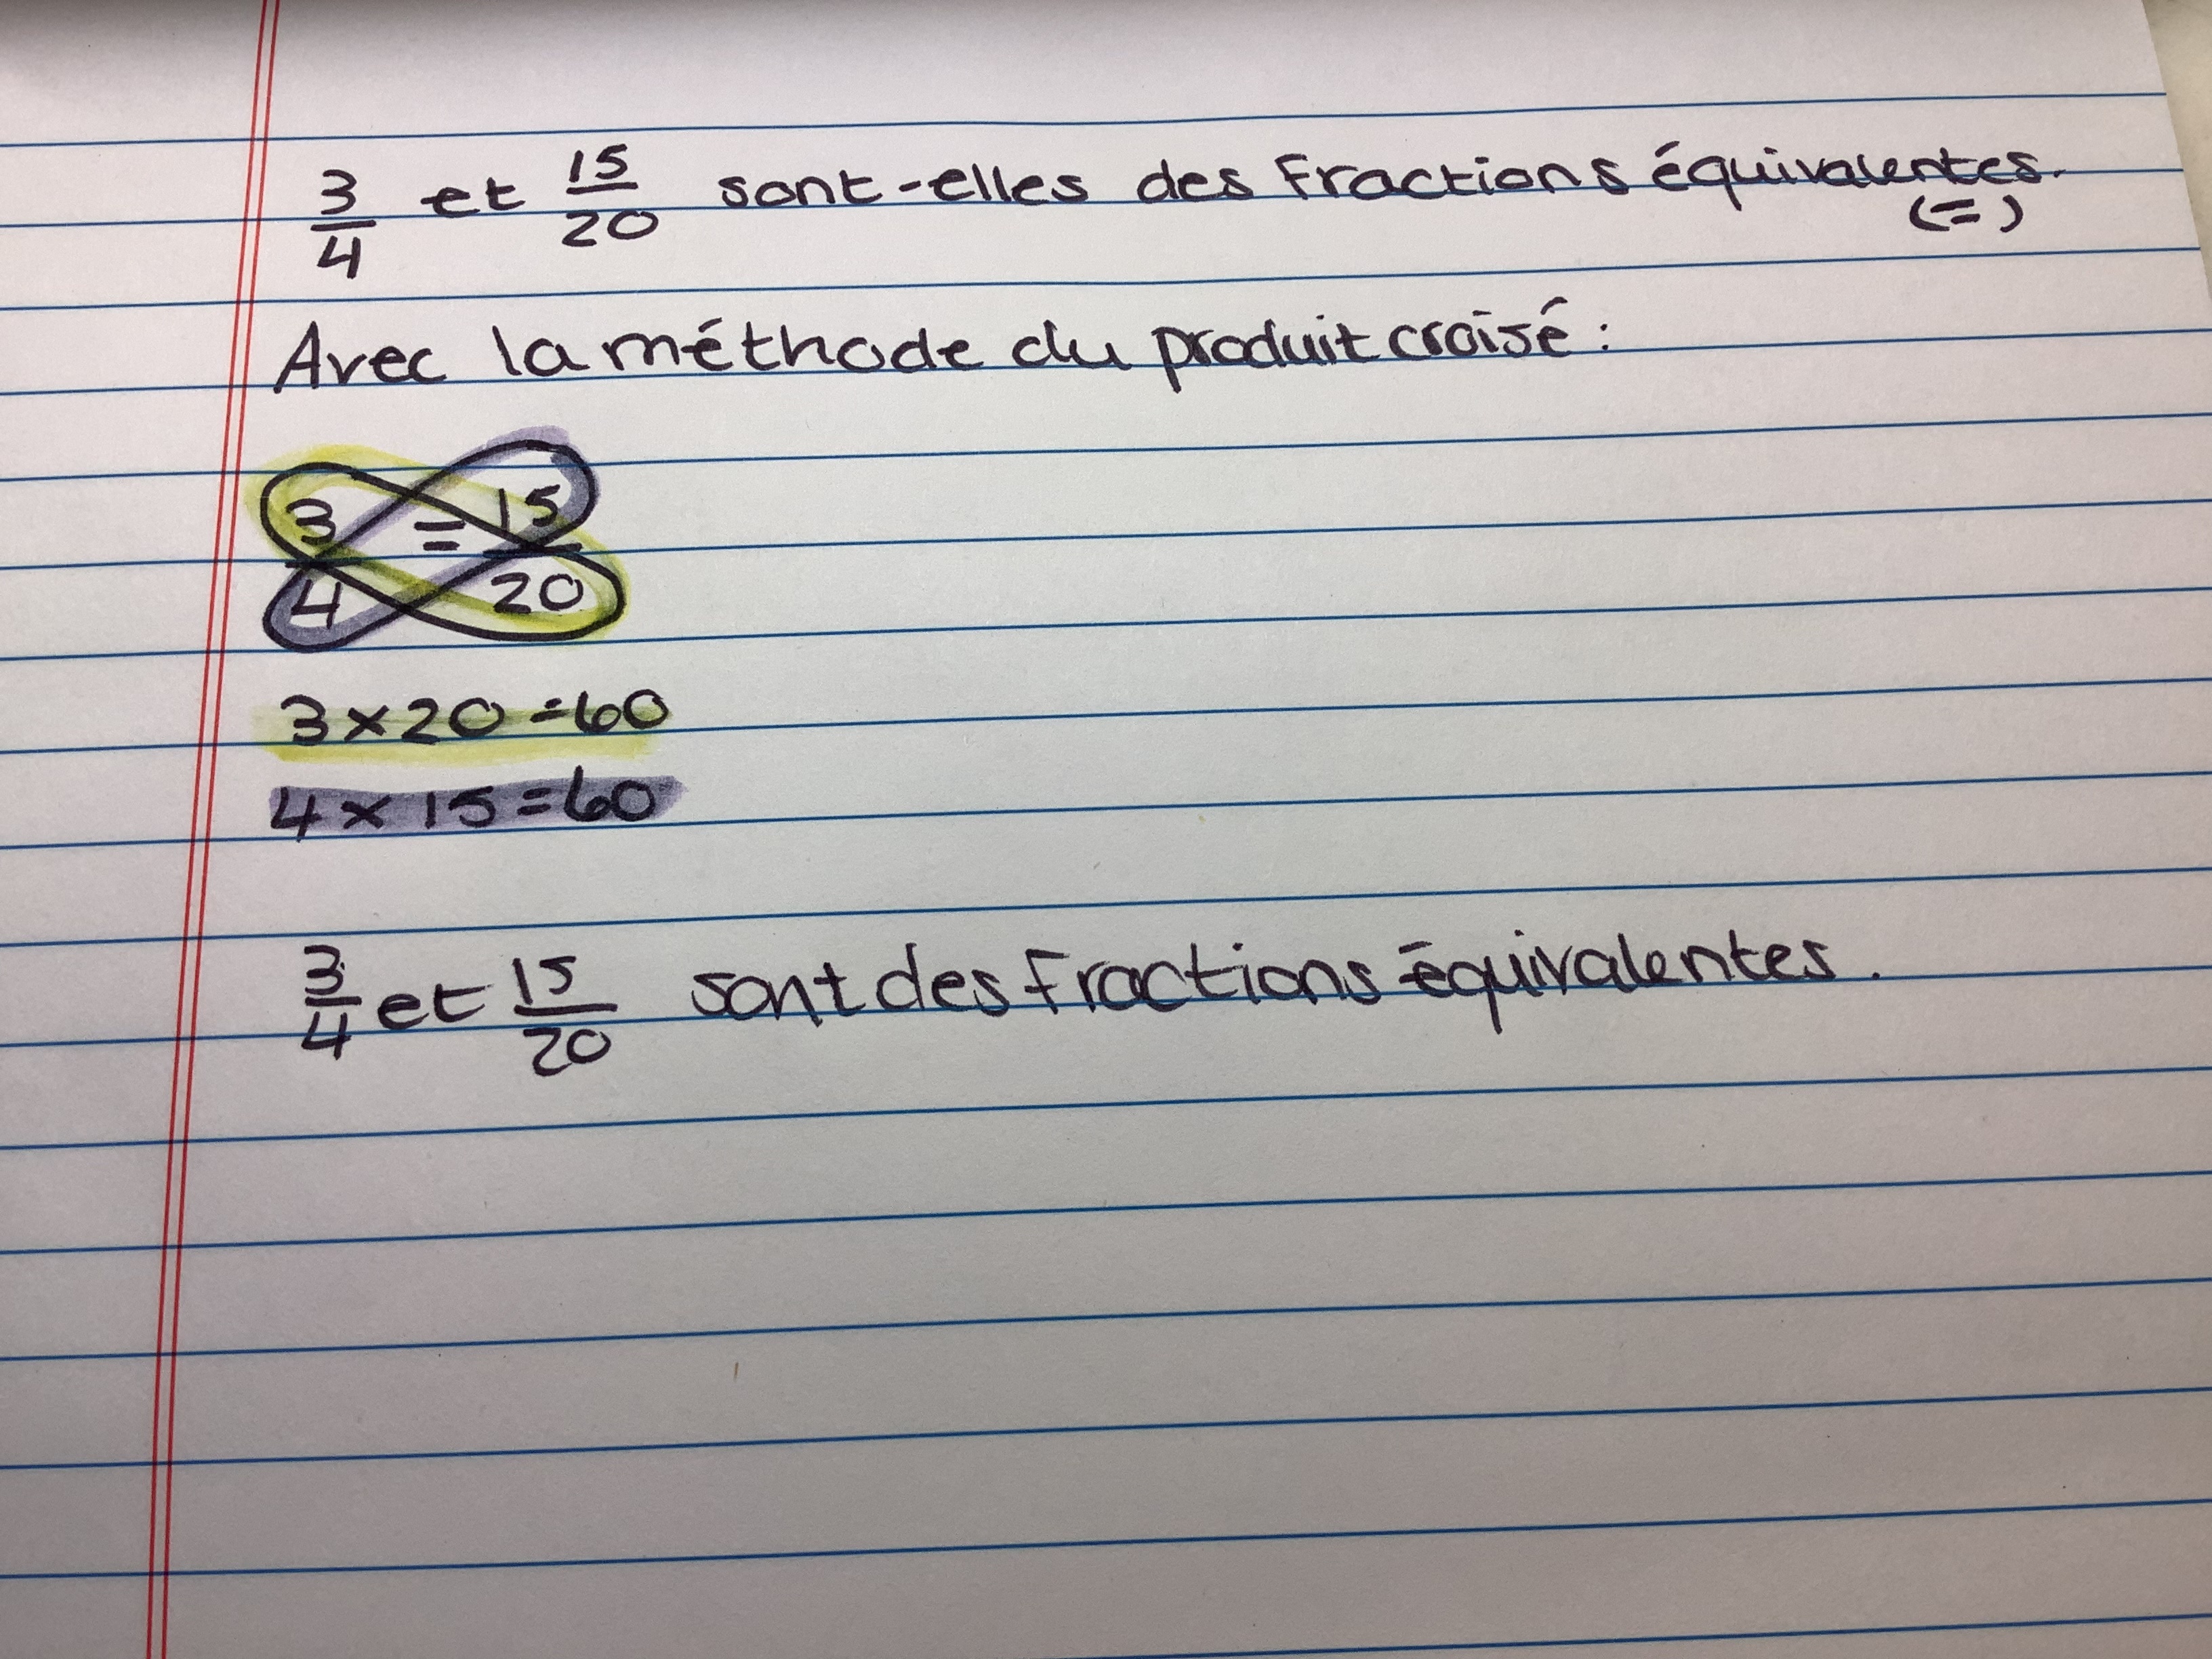 3/4 et 15/20 sont-elles des fractions équivalentes.
(=)
Avec la méthode du produit croisé :
3/4 = 15/20
3 x 20 = 60
4 x 15 = 60
3/4 et 15/20 sont des fractions équivalentes.